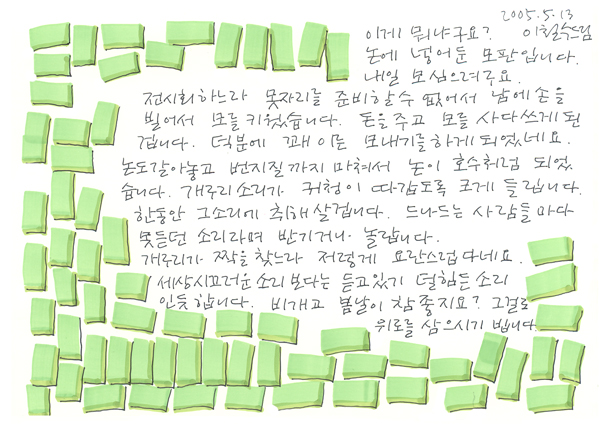 2005.5.13
이게 뭐냐구요? 이철수드림
논에 넣어둔 모판입니다.
내일 모심으려구요.
전시회하느라 못자리를 준비할 수 없어서 남에 손을
빌어서 모를 키웠습니다. 돈을 주고 모를 사다쓰게 된
겁니다. 덕분에 꽤 이른 모내기를 하게 되었네요.
논도 갈아놓고 번지질까지 마쳐서 논이 호수처럼 되었
습니다. 개구리 소리가 귀청이 따갑도록 크게 들립니다.
한동안 그소리에 취해 살겁니다. 드나드는 사람들마다
못듣던 소리라며 반기거나 놀랍니다.
개구리가 짝을 찾느라 저렇게 요란스럽다네요.
세상시끄러운 소리보다는 듣고있기 덜힘든 소리
인듯 합니다. 비개고 봄날이 참 좋지요? 그걸로
위로를 삼으시기 빕니다